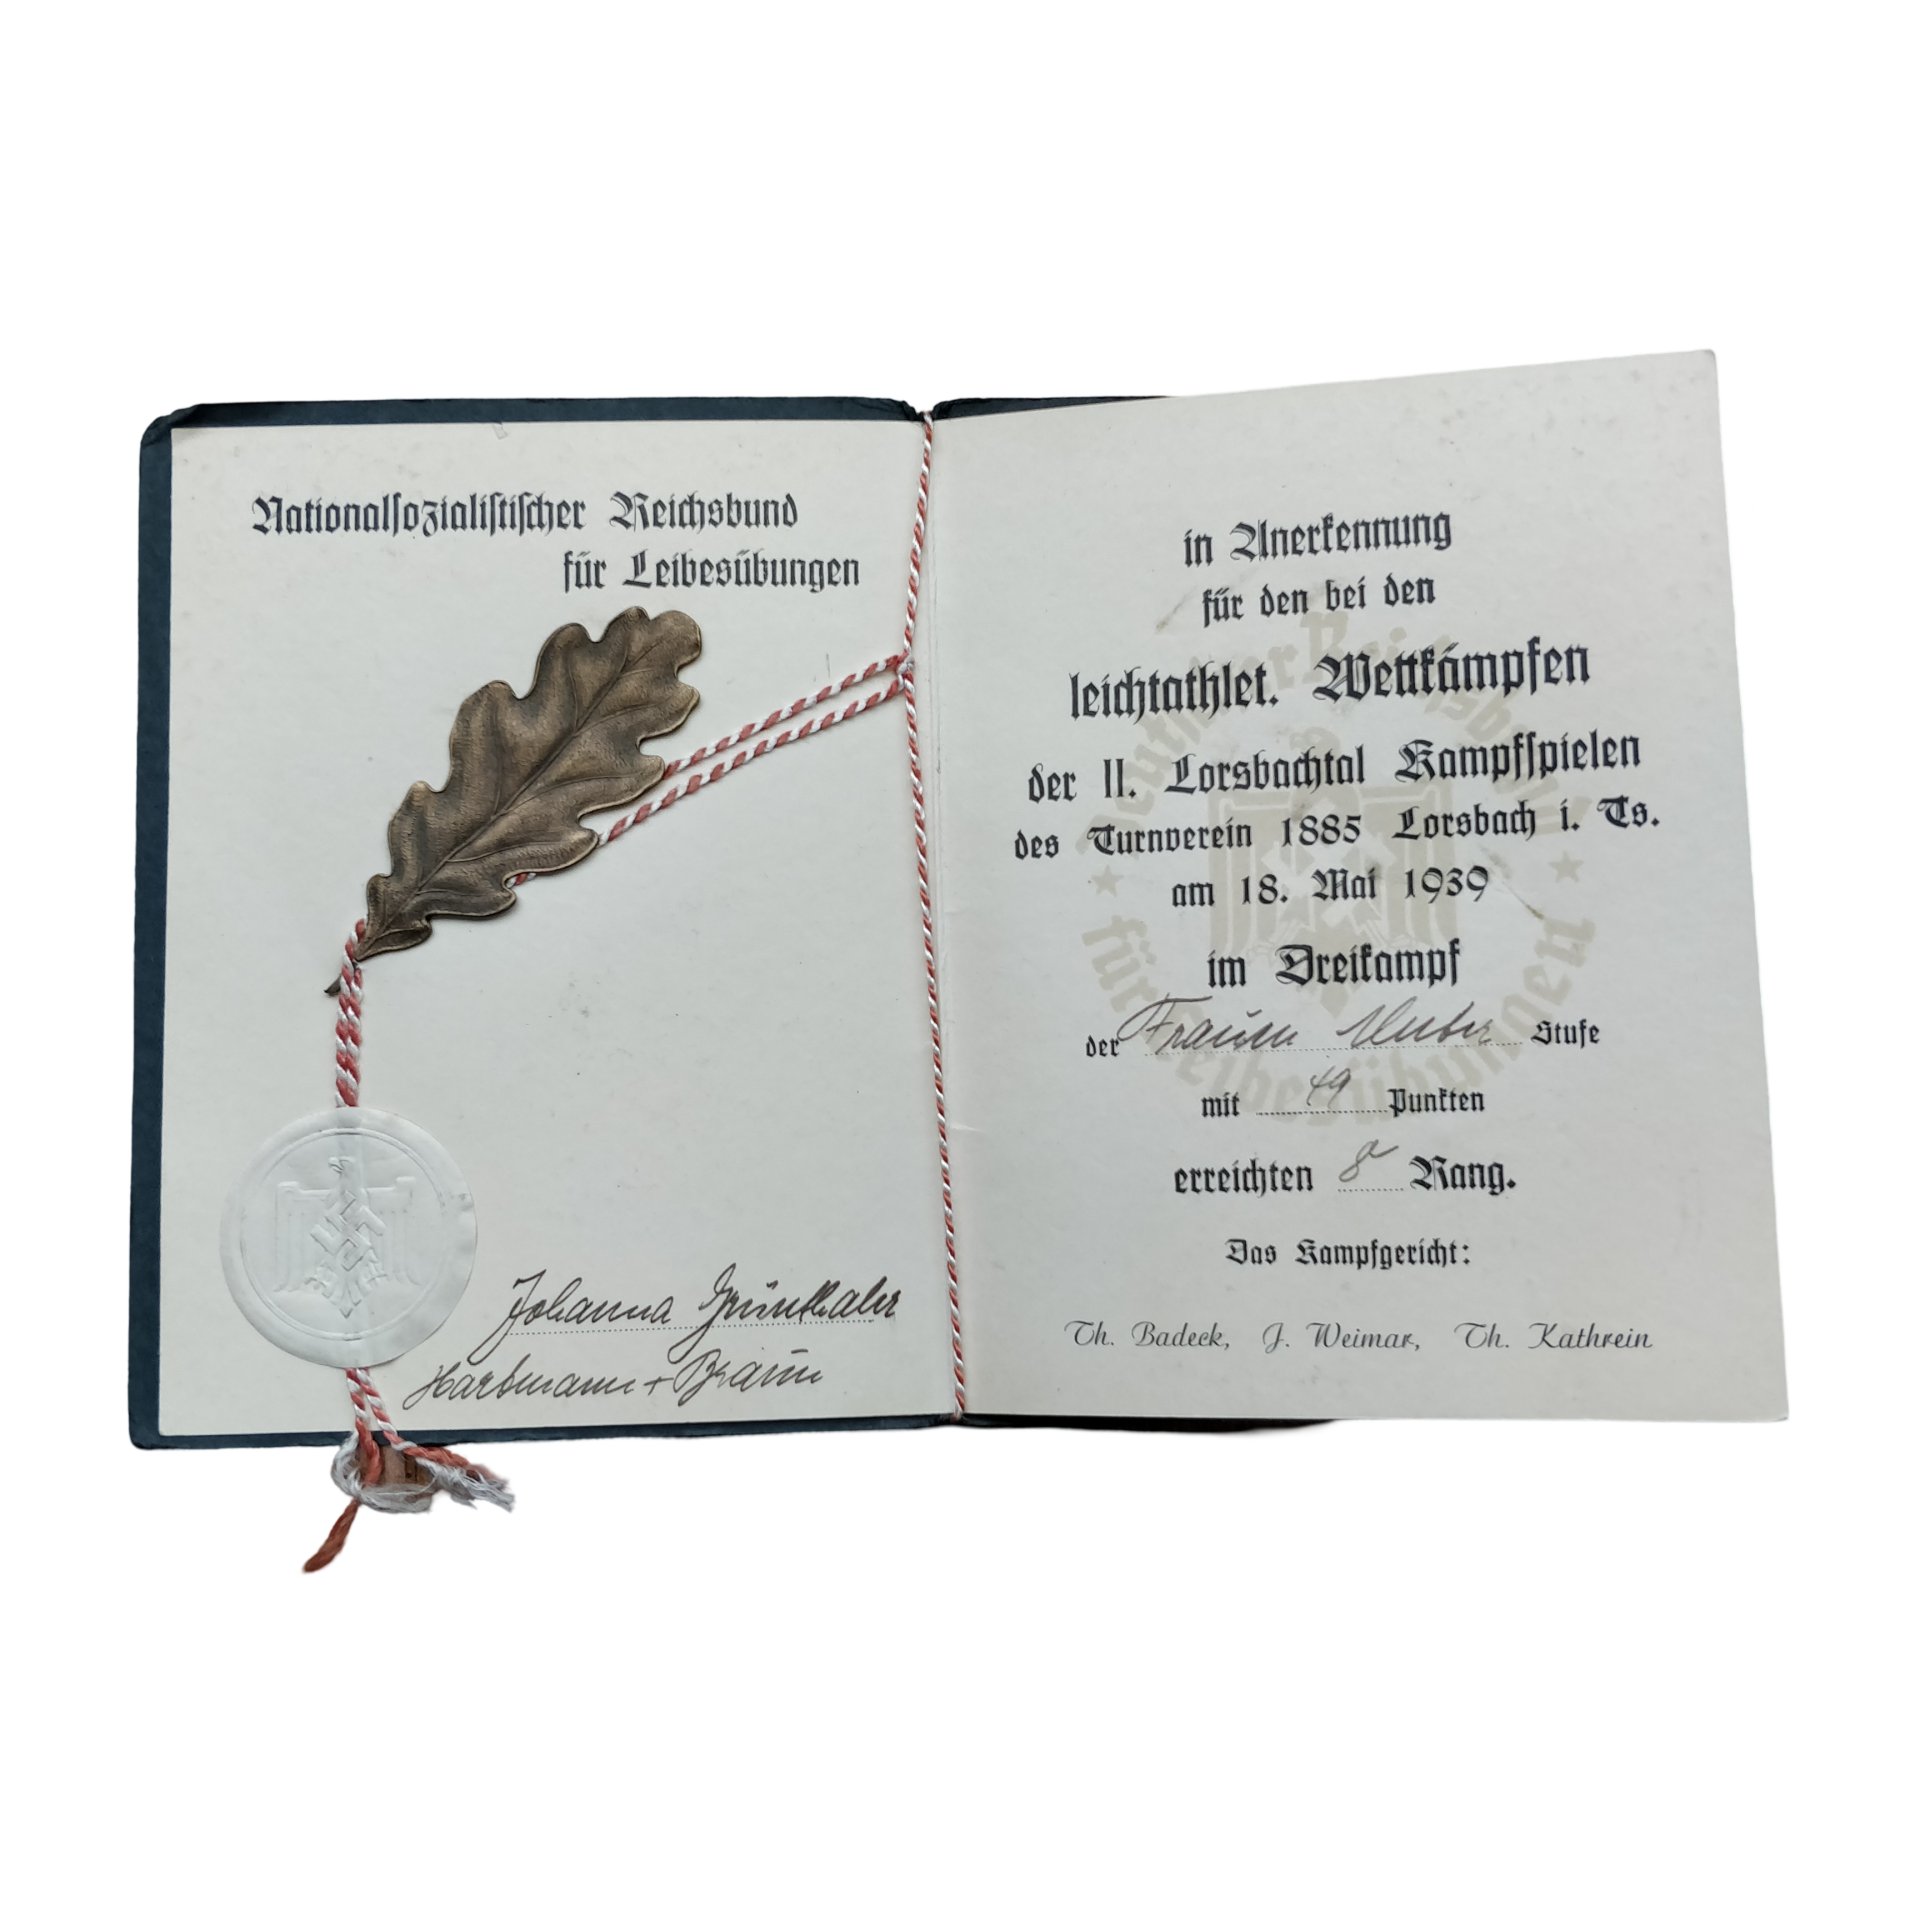 Nationalsozialistischer Reichsbund
für Leibesübungen
Johanna Grünthaler
Hartmann + Braun
in Anerkennung
für den bei den
leichtathlet. Wettkämpfen
der II. Lorsbachtal Kampfspielen
des Turnverein 1885 Lorsbach i. Ts.
am 18. Mai 1939
im Dreikampf
der Frauen Unter Stufe
mit 49 Punkten
erreichten 8 Rang.
Das Kampfgericht:
Th. Badeck, J. Weimar, Th. Kathrein
Deutscher Reichsbund
für Leibesübungen